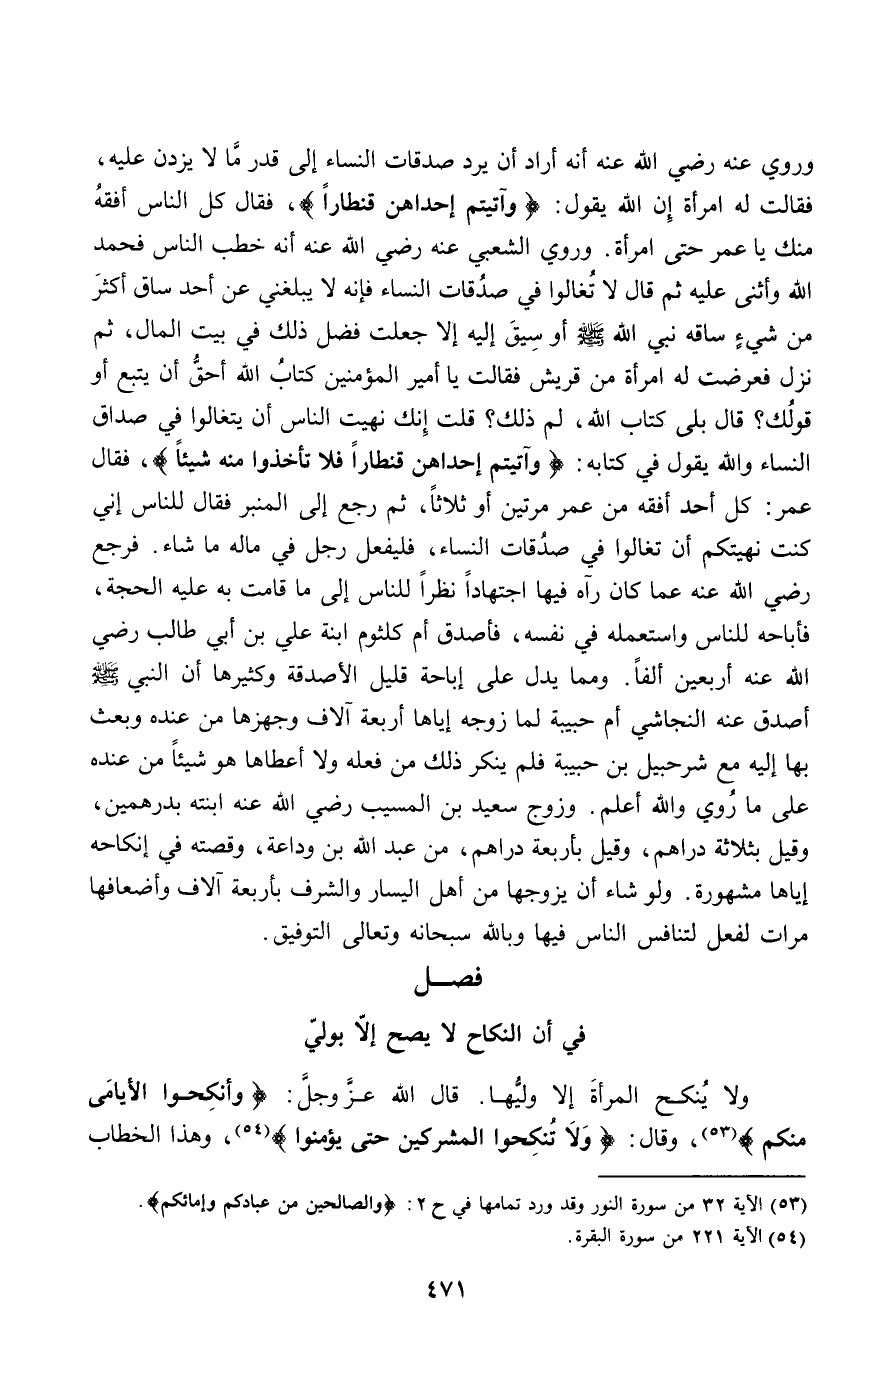 وروي عنه رضي الله عنه أنه أراد أن يرد صدقات النساء إلى قدر مَّا لا يزدن عليه،
فقالت له امرأة إن الله يقول: ﴿ وآتيتم إحداهن قنطاراً ﴾، فقال كل الناس أفقهُ
منك يا عمر حتى امرأة. وروي الشعبي عنه رضي الله عنه أنه خطب الناس فحمد
الله وأثنى عليه ثم قال لا تُغالوا في صدُقات النساء فإنه لا يبلغني عن أحد ساق أكثرَ
من شيءٍ ساقه نبي الله ﷺ أو سِيقَ إليه إلا جعلت فضل ذلك في بيت المال، ثم
نزل فعرضت له امرأة من قريش فقالت يا أمير المؤمنين كتابُ الله أحقُّ أن يتبع أو
قولُك؟ قال بلى كتاب الله، لم ذلك؟ قلت إنك نهيت الناس أن يتغالوا في صداق
النساء والله يقول في كتابه: ﴿ وآتيتم إحداهن قنطاراً فلا تأخذوا منه شيئاً ﴾، فقال
عمر: كل أحد أفقه من عمر مرتين أو ثلاثاً، ثم رجع إلى المنبر فقال للناس إني
كنت نهيتكم أن تغالوا في صدُقات النساء، فليفعل رجل في ماله ما شاء. فرجع
رضي الله عنه عما كان رآه فيها اجتهاداً نظراً للناس إلى ما قامت به عليه الحجة،
فأباحه للناس واستعمله في نفسه، فأصدق أم كلثوم ابنة علي بن أبي طالب رضي
الله عنه أربعين ألفاً. ومما يدل على إباحة قليل الأصدقة وكثيرها أن النبي ﷺ
أصدق عنه النجاشي أم حبيبة لما زوجه إياها أربعة آلاف وجهزها من عنده وبعث
بها إليه مع شرحبيل بن حبيبة فلم ينكر ذلك من فعله ولا أعطاها هو شيئاً من عنده
على ما رُوي والله أعلم. وزوج سعيد بن المسيب رضي الله عنه ابنته بدرهمين،
وقيل بثلاثة دراهم، وقيل بأربعة دراهم، من عبد الله بن وداعة، وقصته في إنكاحه
إياها مشهورة. ولو شاء أن يزوجها من أهل اليسار والشرف بأربعة آلاف وأضعافها
مرات لفعل لتنافس الناس فيها وبالله سبحانه وتعالى التوفيق.
فصــل
في أن النكاح لا يصح إلّا بوليّ
ولا يُنكـح المرأةَ إلا وليُّهـا. قال الله عـزَّ وجلَّ: ﴿ وأنكِحـوا الأيامَى
منكم ﴾(٥٣)، وقال: ﴿ وَلَا تُنكِحوا المشركين حتى يؤمنوا ﴾(٥٤)، وهذا الخطاب
(٥٣) الآية ٣٢ من سورة النور وقد ورد تمامها في ح ٢: ﴿والصالحين من عبادكم وإمائكم﴾.
(٥٤) الآية ٢٢١ من سورة البقرة.
٤٧١